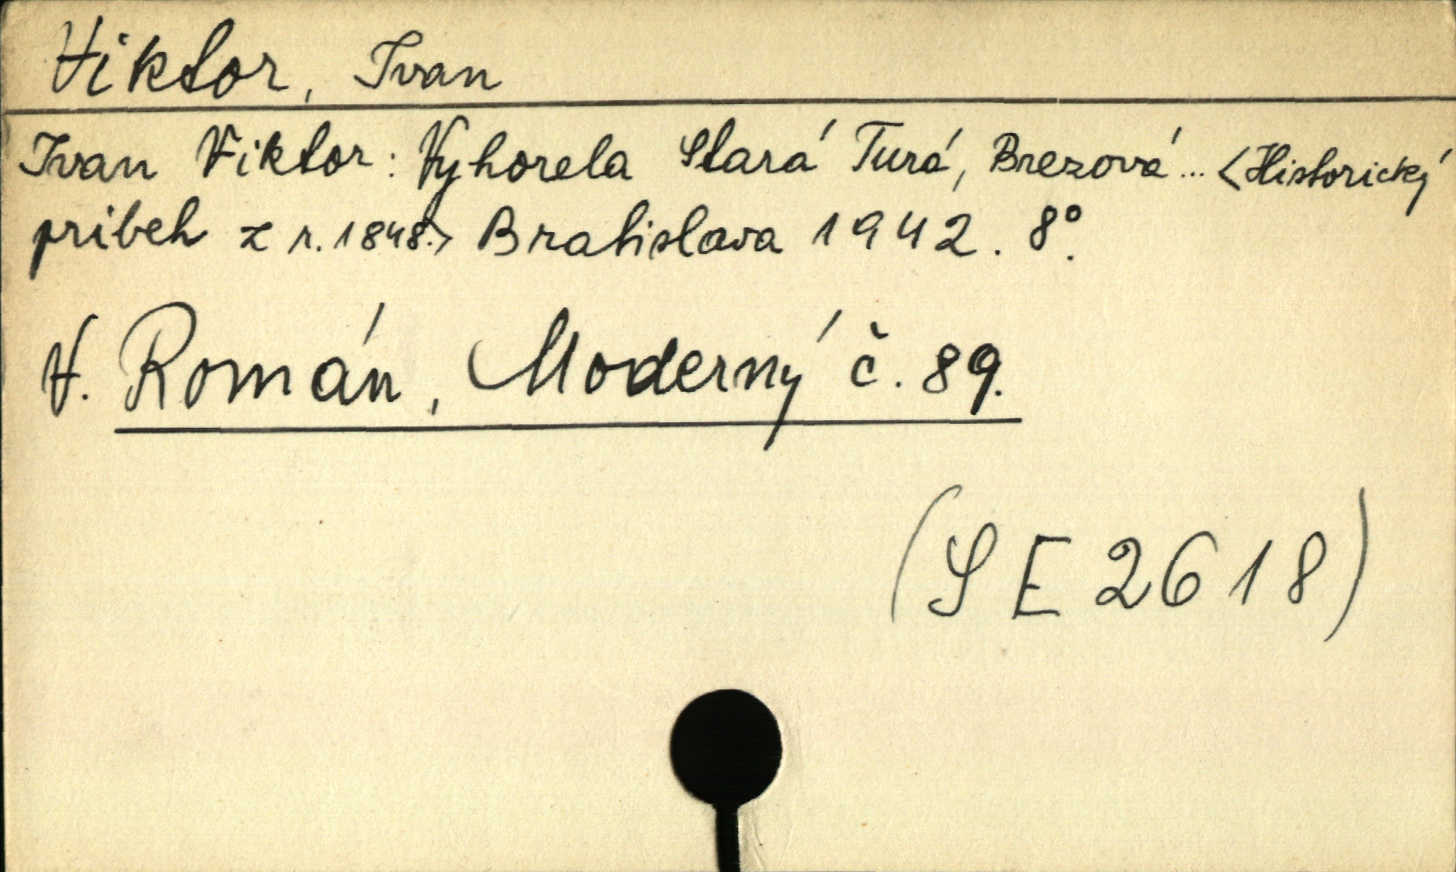 Viktor, Ivan
Ivan Viktor: Vyhorela Stará Turá, Brezová... <Historický
pribeh z r. 1848.> Bratislava 1942. 8°.
V. Román, Moderný č. 89.
(SE 2618)